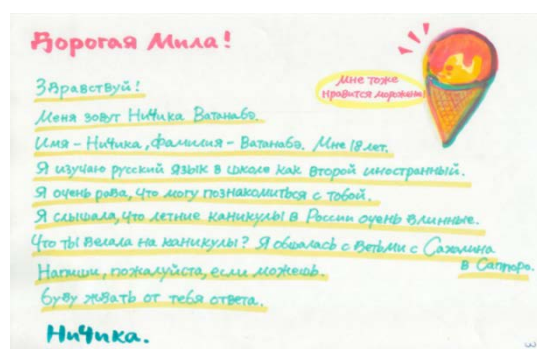 Дорогая Мила!
Мне тоже
нравится мороженое!
Здравствуй!
Меня зовут Ничика Ватанабэ.
Имя - Ничика, фамилия - Ватанабэ. Мне 18 лет.
Я изучаю русский язык в школе как второй иностранный.
Я очень рада, что могу познакомиться с тобой.
Я слышала, что летние каникулы в России очень длинные.
Что ты делала на каникулы? Я общалась с детьми с Сахалина
в Саппоро.
Напиши, пожалуйста, если можешь.
буду ждать от тебя ответа.
Ничика.